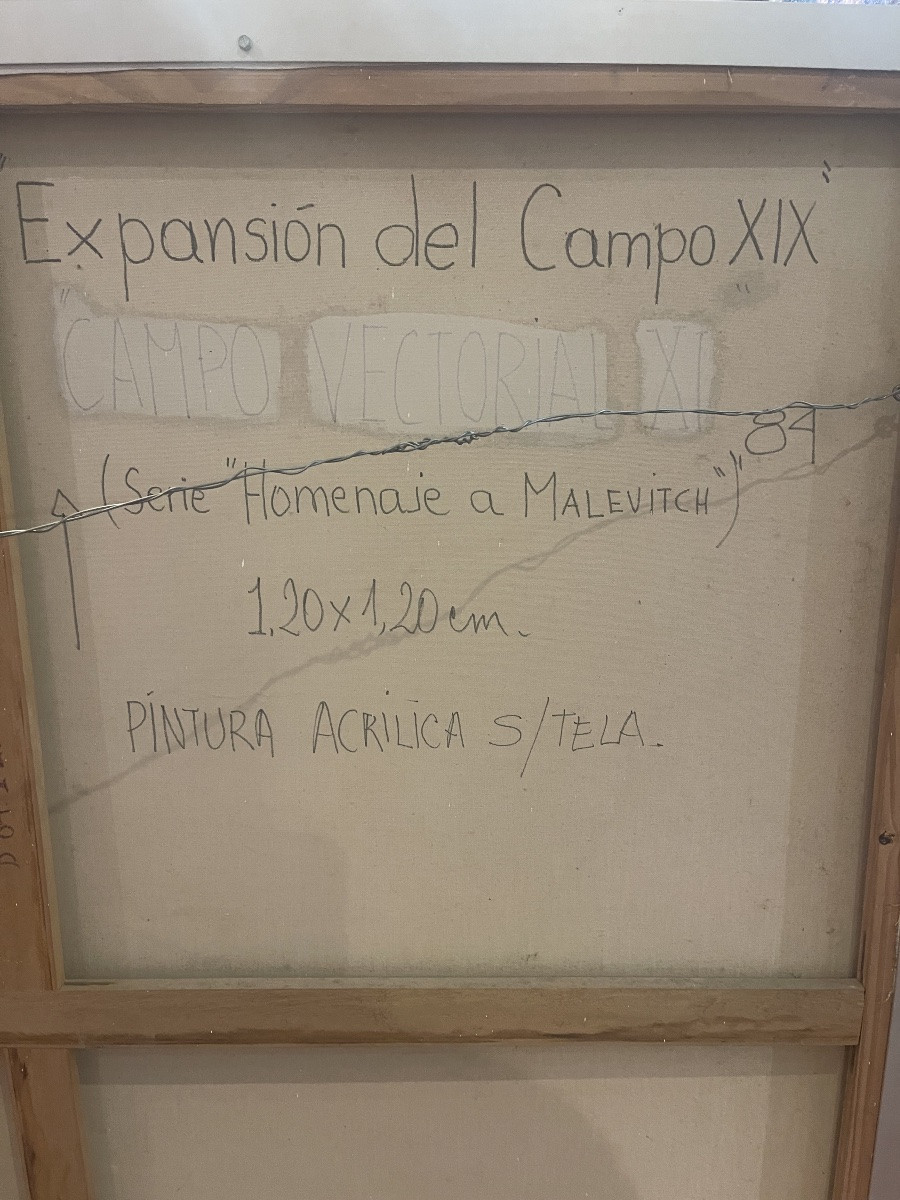 "Expansión del Campo XIX"
"CAMPO VECTORIAL XI"
84
(Serie "Homenaje a MALEVITCH")"
1,20x1,20 cm.
PINTURA ACRILICA S/TELA.